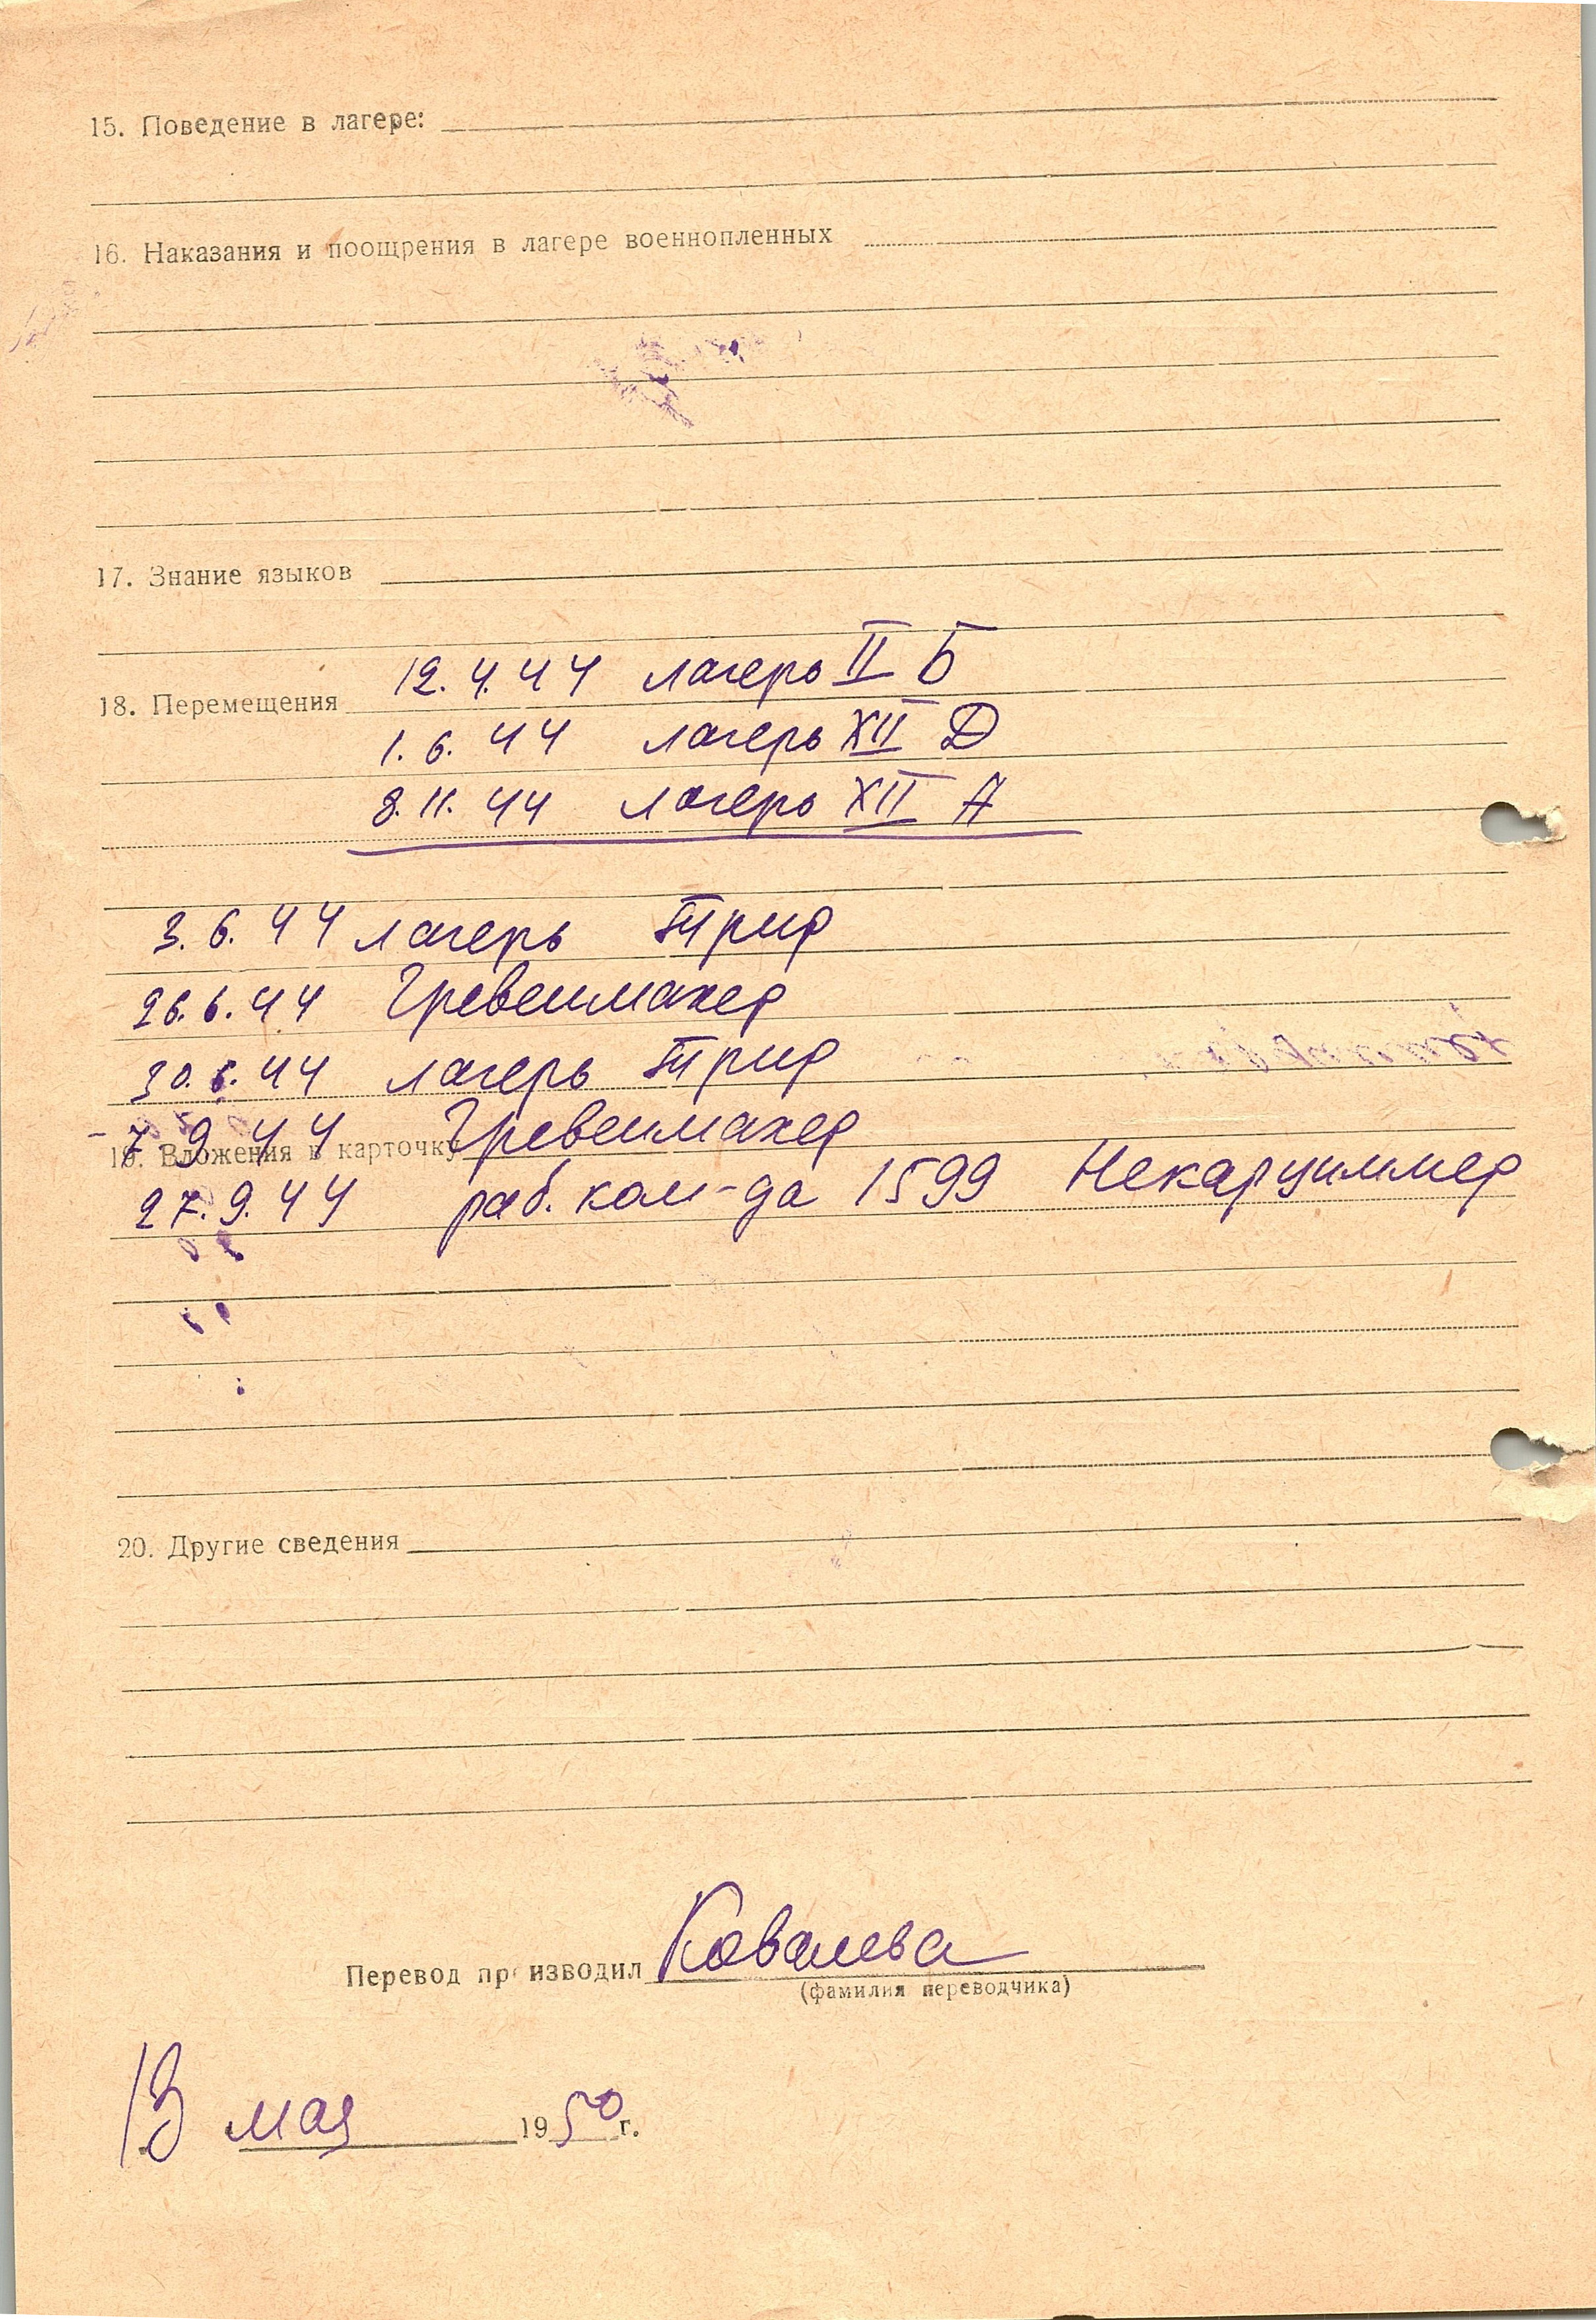 15. Поведение в лагере:
16. Наказания и поощрения в лагере военнопленных
17. Знание языков
12.4.44 лагерь II Б
18. Перемещения
1.6.44 лагерь XII Д
8.11.44 лагерь XII А
3.6.44 лагерь Трир
26.6.44 Гревенмахер
30.6.44 лагерь Трир
7 9 44 Гревенмахер
19. Вложения в карточку
27.9.44 раб. ком-да 1599 Некарциммер
20. Другие сведения
Перевод производил Ковалева
(фамилия переводчика)
13 мая 1950 г.